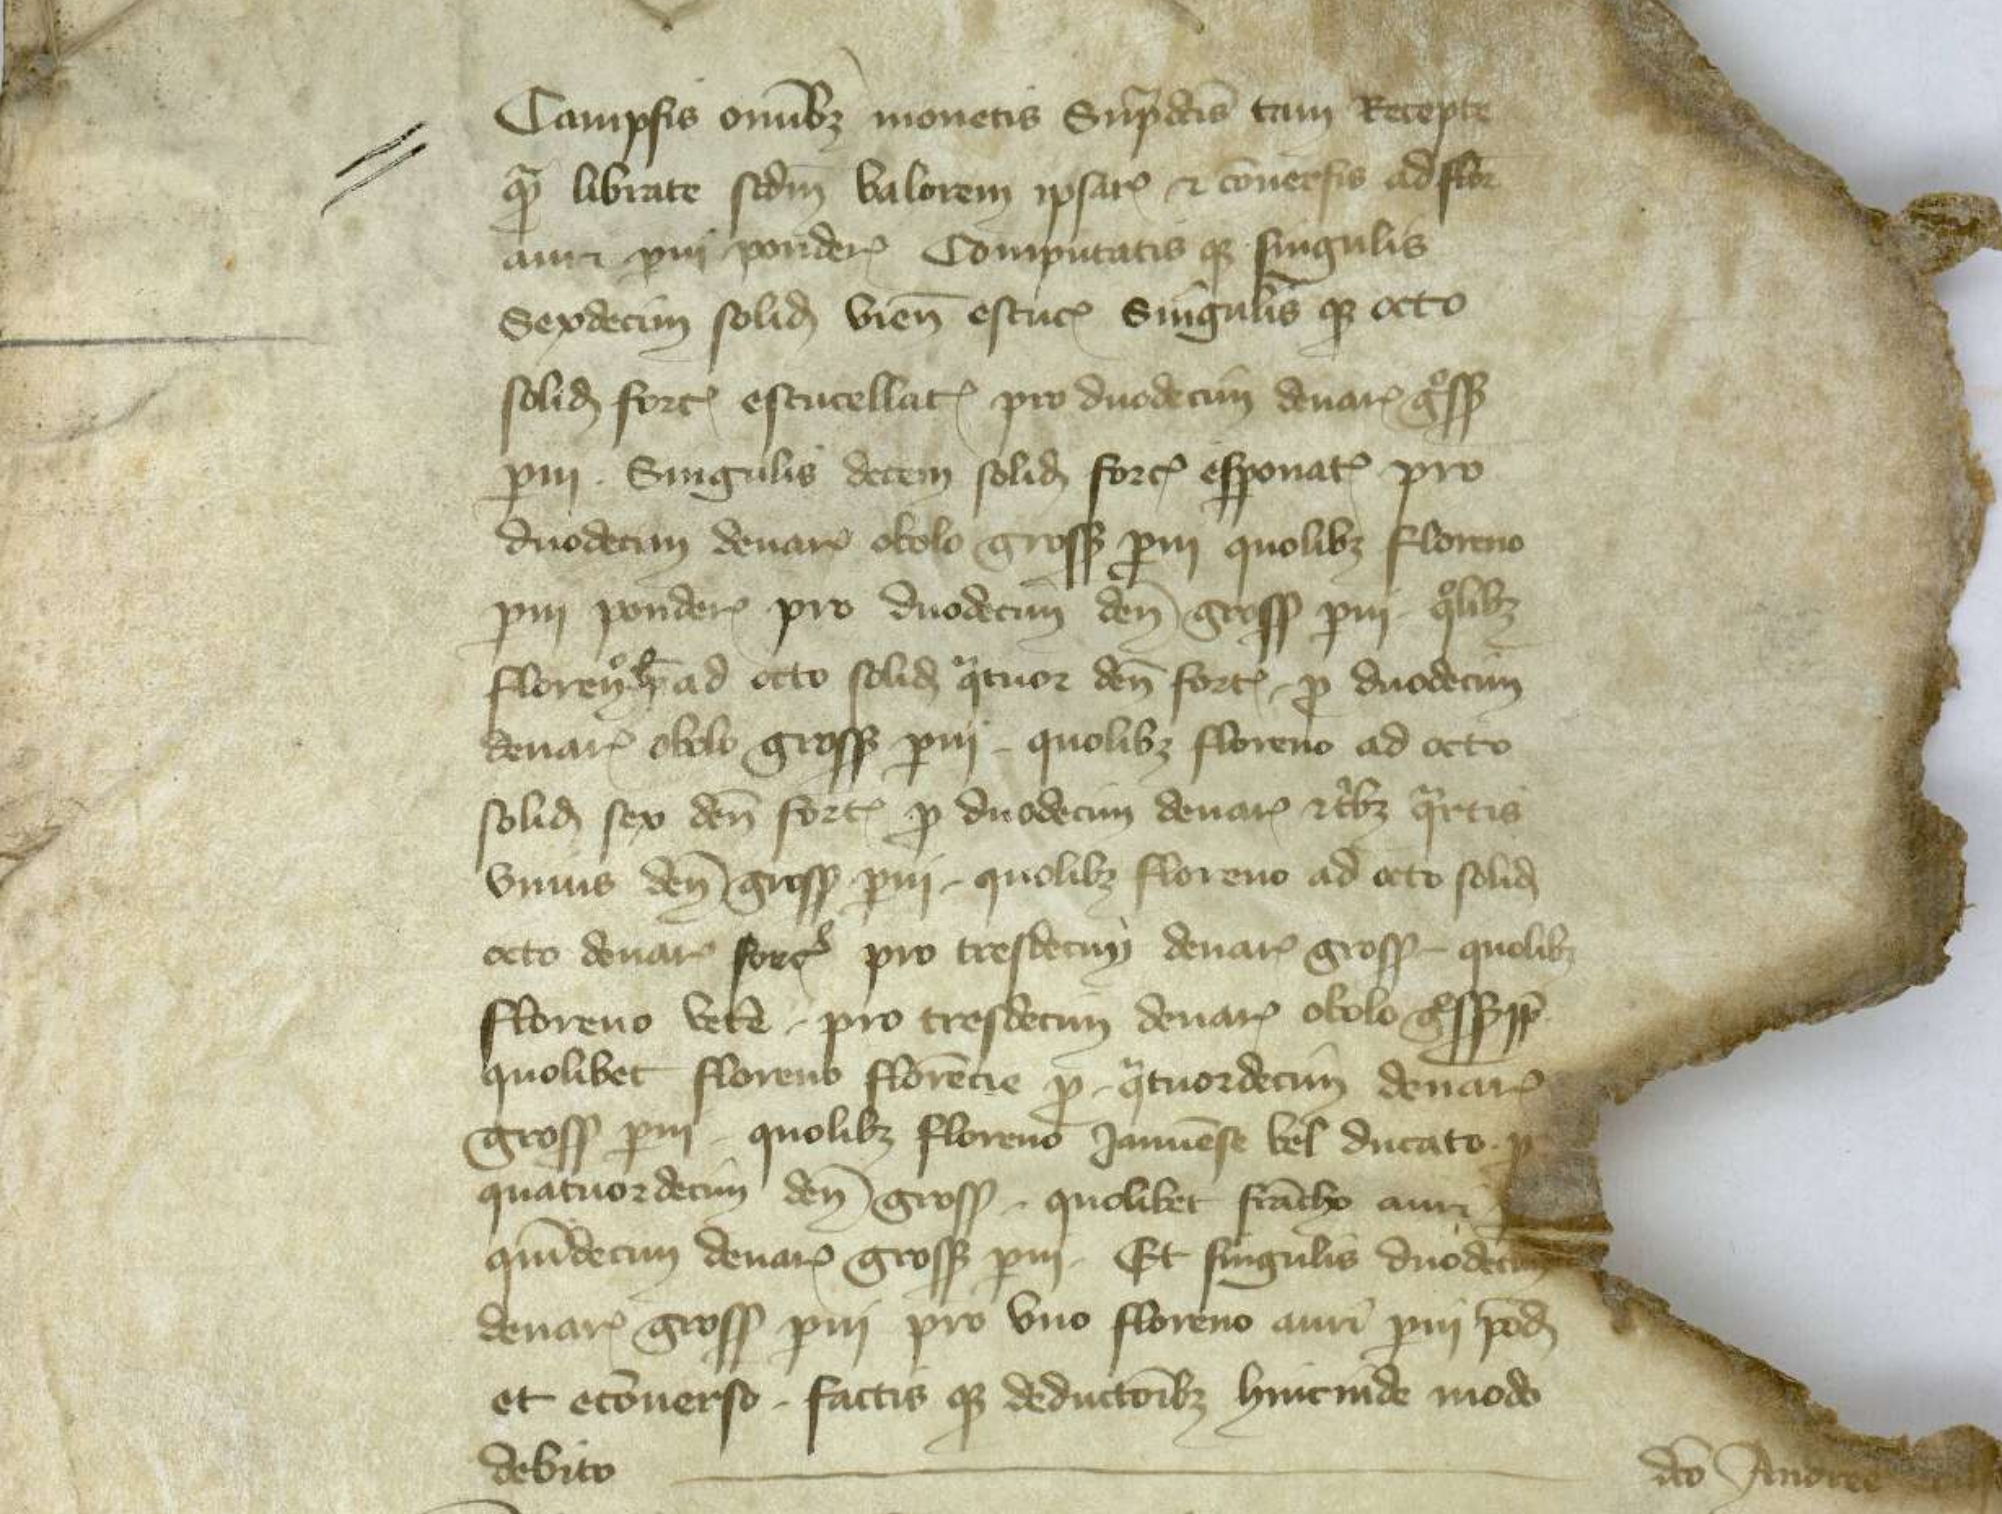 Campsis omībȝ monetis Sup̄dcīs tam Recepte
qᵃ̄ librate scdm̄ valorem ipsaꝝ ⁊ cōuersis ad flor̄
auri ꝑui ponderꝭ Computatis qꝫ singulis
Sexdecim solid vien̄ escucꝭ Singulis qꝫ octo
solid fortꝭ escucellatꝭ pro duodecim denarꝭ gͦss
ꝑui . Singulis decem solid fortꝭ esperonatꝭ pro
duodecim denarꝭ obolo gross ꝑui quolibȝ floreno
ꝑui ponderꝭ pro duodecim den̄ gross ꝑui qͦlibȝ
floren̊ ad octo solid qᵃtuor den̄ fortꝭ ꝓ duodecim
denarꝭ obolo gross ꝑui - quolibȝ floreno ad octo
solid sex den̄ fortꝭ ꝓ duodecim denarꝭ ⁊ tⁱbȝ qᵃrtis
vnius den̄ gross ꝑui - quolibȝ floreno ad octo solid
octo denarꝭ fortꝭ pro tresdecim denarꝭ gross - quolibȝ
floreno vetē - pro tresdecim denarꝭ obolo gͦss
quolibet floreno florēcie ꝓ - qᵃtuordecim denarꝭ
gross ꝑui - quolibȝ floreno Januēse vel ducato ꝓ
quatuordecim den̄ gross - quolibet frācho auri
quīdecim denarꝭ gross ꝑui - Et singulis duodecim
denarꝭ gross ꝑui pro vno floreno auri ꝑui pōd
et ecōuerso - factis qꝫ deductōībȝ hincinde modo
debito dc̄o Andree